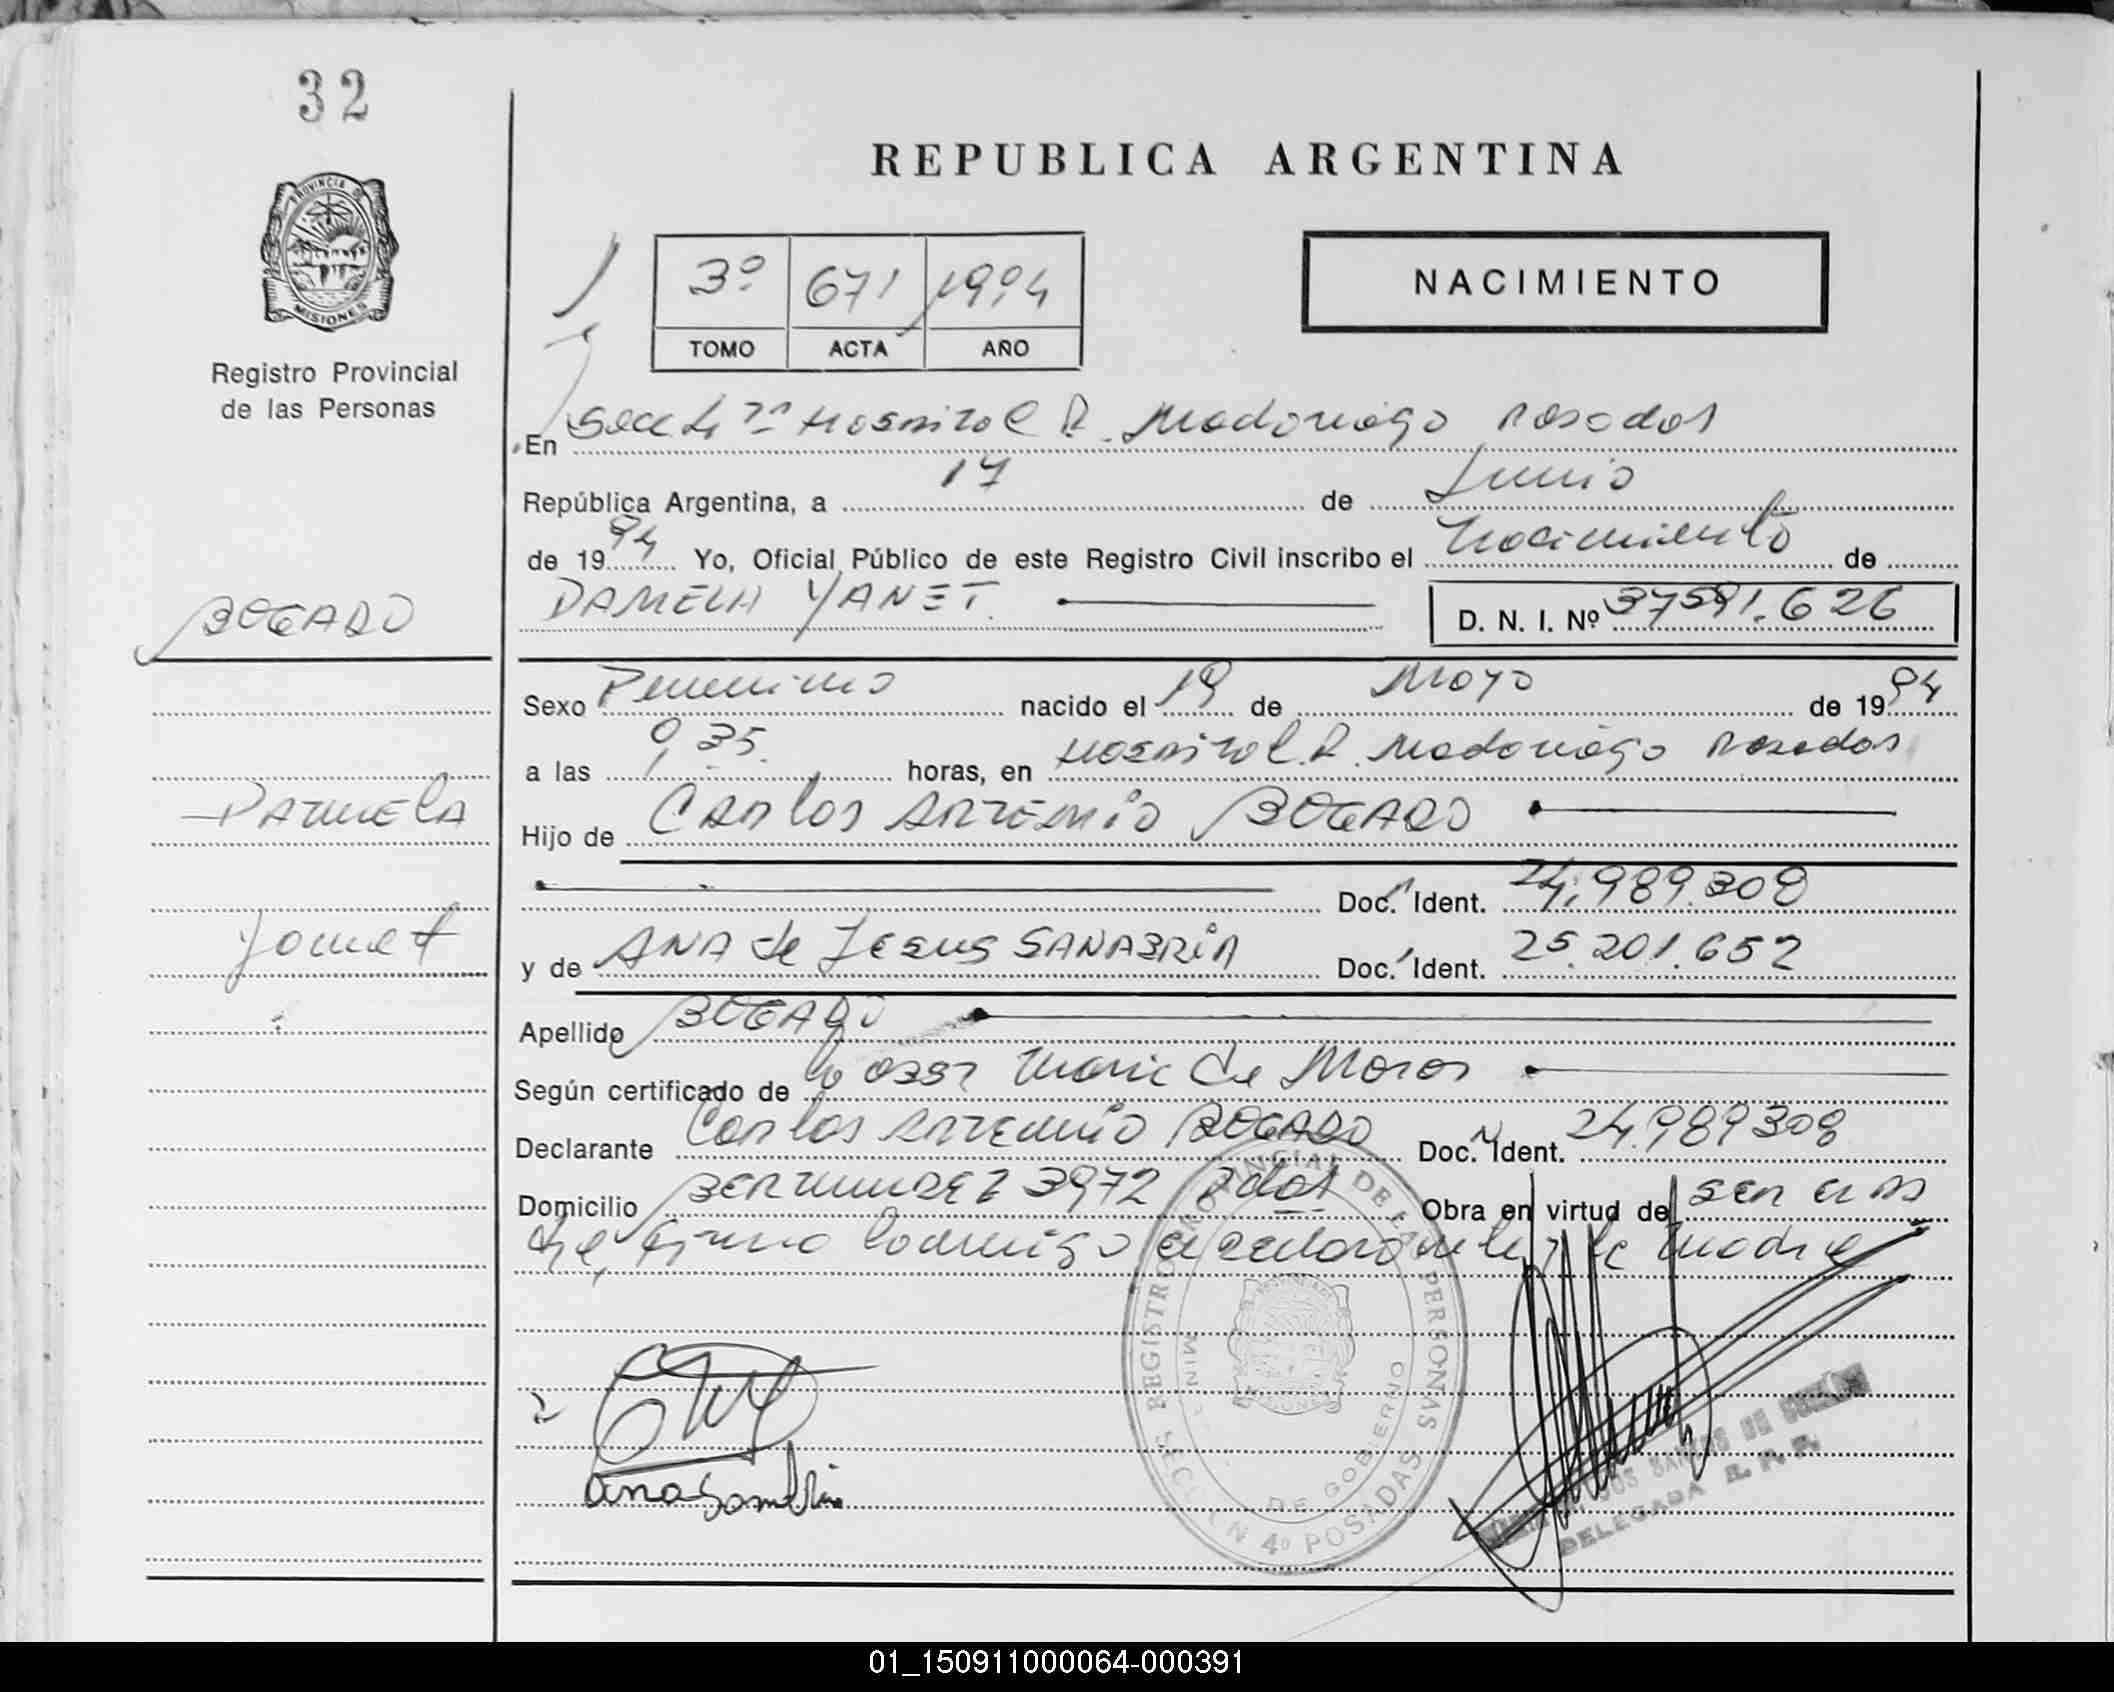 32
REPUBLICA ARGENTINA
PROVINCIA DE
MISIONES
Registro Provincial
de las Personas
3º 671 1994
TOMO ACTA AÑO
NACIMIENTO
En Secc 4ª Hospital R. Madariaga Posadas
República Argentina, a 17 de Junio
de 1994 Yo, Oficial Público de este Registro Civil inscribo el Nacimiento de
BOGADO
DAMELA YANET. D. N. I. Nº 37591.626
Sexo Femenino nacido el 19 de Mayo de 1994
a las 9,35. horas, en Hospital R. Madariaga Posadas
Yanet
Hijo de Carlos ARTEMIO BOGADO
Doc. Ident. 24.989.308
y de ANA de Jesus SANABRIA Doc. Ident. 25.201.652
Apellido BOGADO
Según certificado de Maric de
Declarante Carlos ARTEMIO BOGADO Doc. Ident. 24.989308
Domicilio 3972 Pdas Obra en virtud de ser el
firma conmigo el declarante y la madre
REGISTRO PROVINCIAL DE LAS PERSONAS
DE GOBIERNO
SECCION 4º POSADAS
Ana Sanabria
DELEGADA R. P. P.
01_150911000064-000391